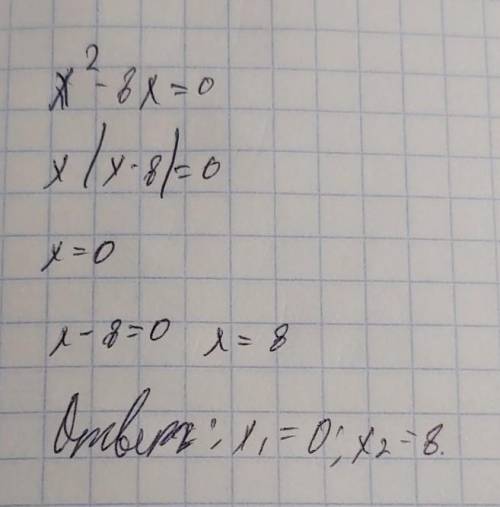 x² - 8x = 0
x(x - 8) = 0
x = 0
x - 8 = 0 x = 8
Ответ: x₁ = 0; x₂ = 8.